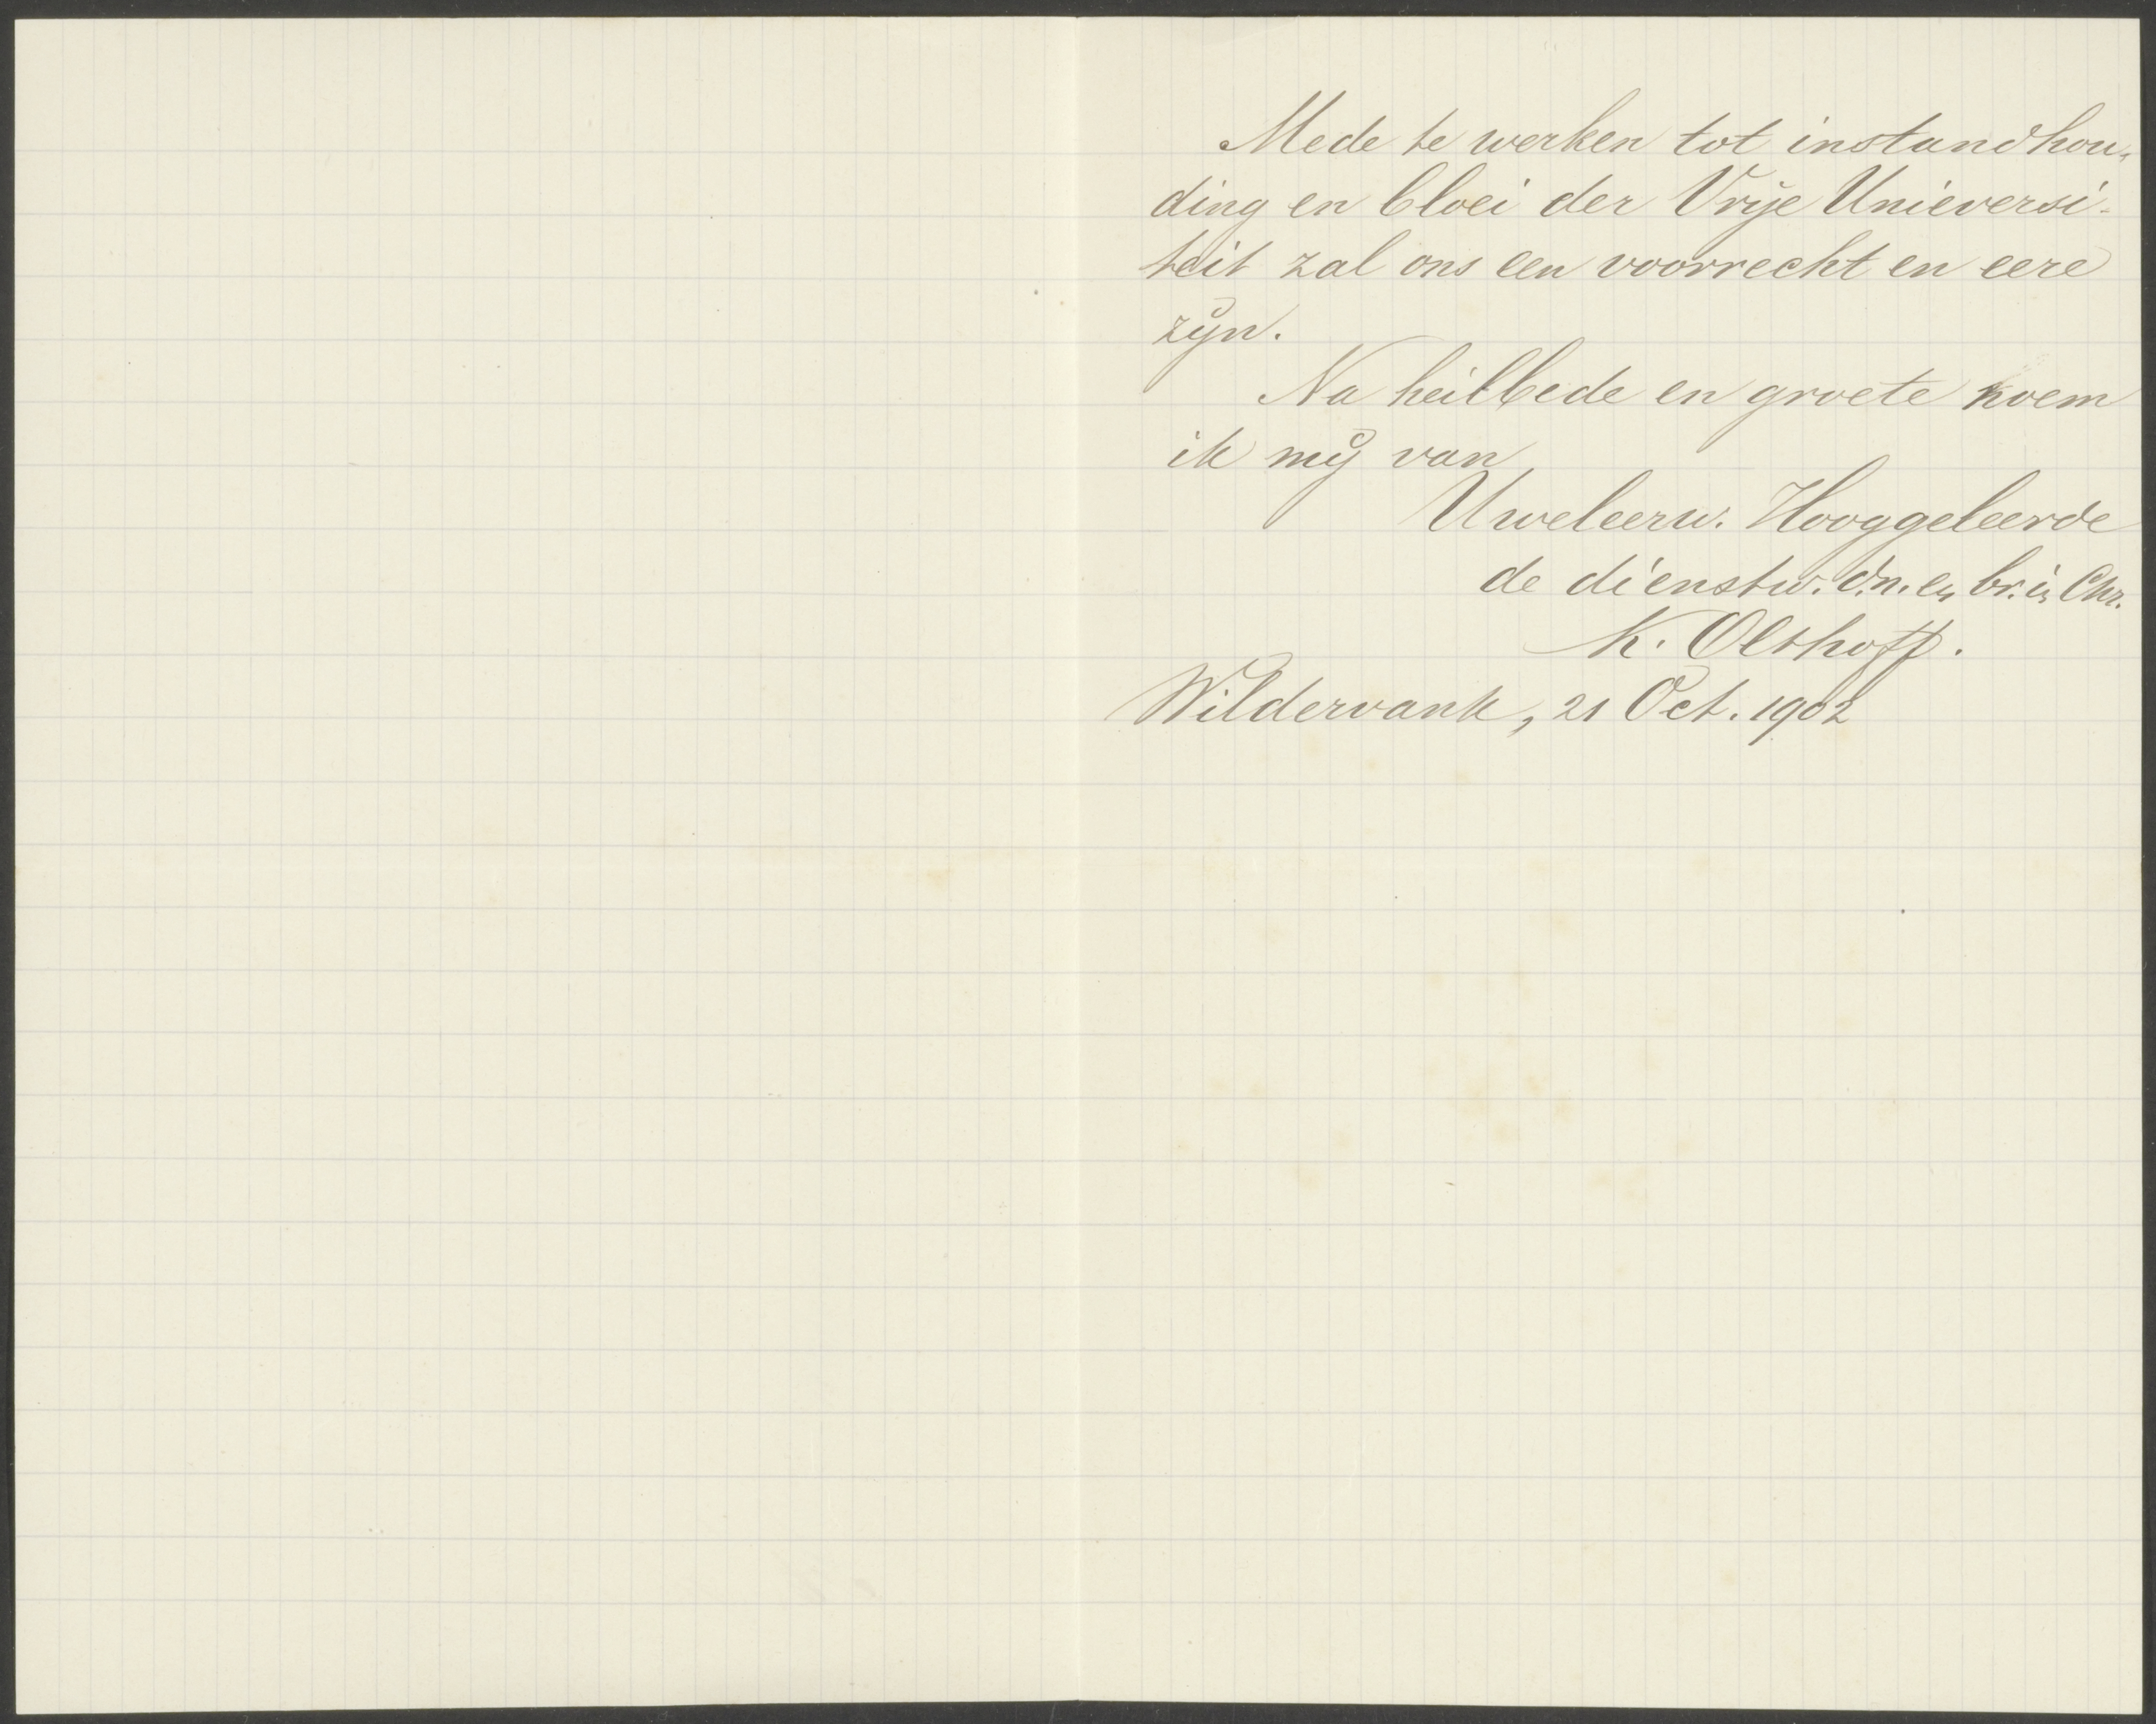 Mede te werken tot instandhou-
ding en bloei der Vrije Unieversi-
teit zal ons een voorrecht en eere
zijn.
Na heilbede en groete noem
ik mij van
Uweleerw. Hooggeleerde
de dienstw. d.n. en br. in Chr.
K. Olthoff.
Wildervank, 21 Oct. 1902